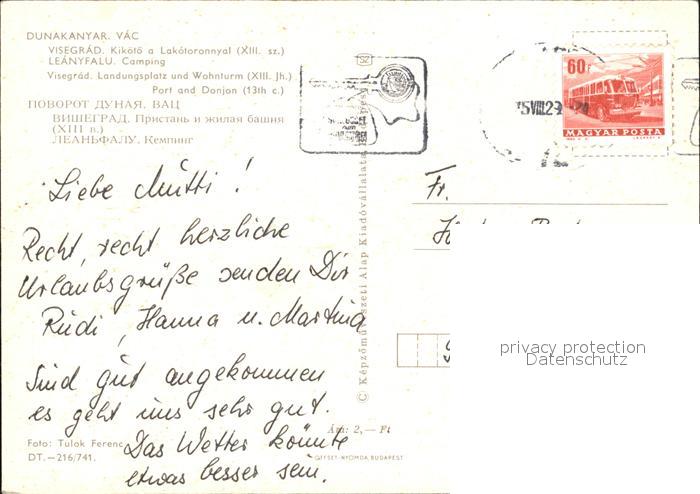 DUNAKANYAR. VÁC
VISEGRÁD. Kikötő a Lakótoronnyal (XIII. sz.)
LEÁNYFALU. Camping
Visegrád. Landungsplatz und Wohnturm (XIII. Jh.)
Port and Donjon (13th c.)
ПОВОРОТ ДУНАЯ. ВАЦ
ВИШЕГРАД. Пристань и жилая башня
(XIII в.)
ЛЕАНЬФАЛУ. Кемпинг
Liebe Mutti!
Recht, recht herzliche
Urlaubsgrüße senden Dir
Rudi, Hanna u. Martina
Sind gut angekommen
es geht uns sehr gut.
Das Wetter könnte
etwas besser sein.
Foto: Tulok Ferenc
DT.—216/741.
Ára: 2,— Ft
OFFSET-NYOMDA, BUDAPEST
© Képzőművészeti Alap Kiadóvállalata
60f
MAGYAR POSTA
75VIII.29
Fr.
privacy protection
Datenschutz